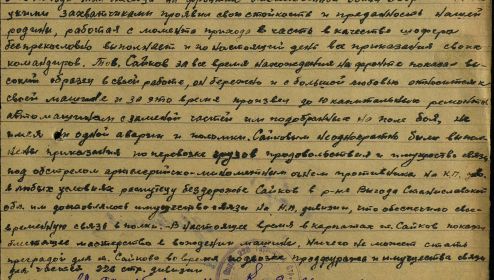 учими захватчиками проявил свою стойкость и преданность нашей
родины, работая с момента прихода в часть в качестве шофера
беспрекословно выполняет и по настоящий день все приказания своих
командиров. Тов. Сайков за все время нахождения на фронте показал вы-
сокий образец в своей работе, он бережно и с большой любовью относится к
своей машине и за это время произвел до 10 капитальных ремонтов
автомашинам с заменой частей им подобранных на поле боя, не
имея ни одной аварии и поломки. Сайковым неоднократно были выпол-
нены приказания по перевозке грузов продовольствия и имущества связи
под обстрелом артиллерийско-минометным огнем противника на К.П. див.
в любых условиях распутицу бездорожье Сайков в р-не Выгода Станиславской
обл. им доставлялось имущество связи на К.П. дивизии, что обеспечило свое-
временную связь в полки. В настоящее время в карпатах т. Сайков показы
блестящее мастерство в вождении машины. Ничего не может стать
преградой для т. Сайкова во время подвозки продфуража и имущества связи
для частей 328 стр. дивизии.